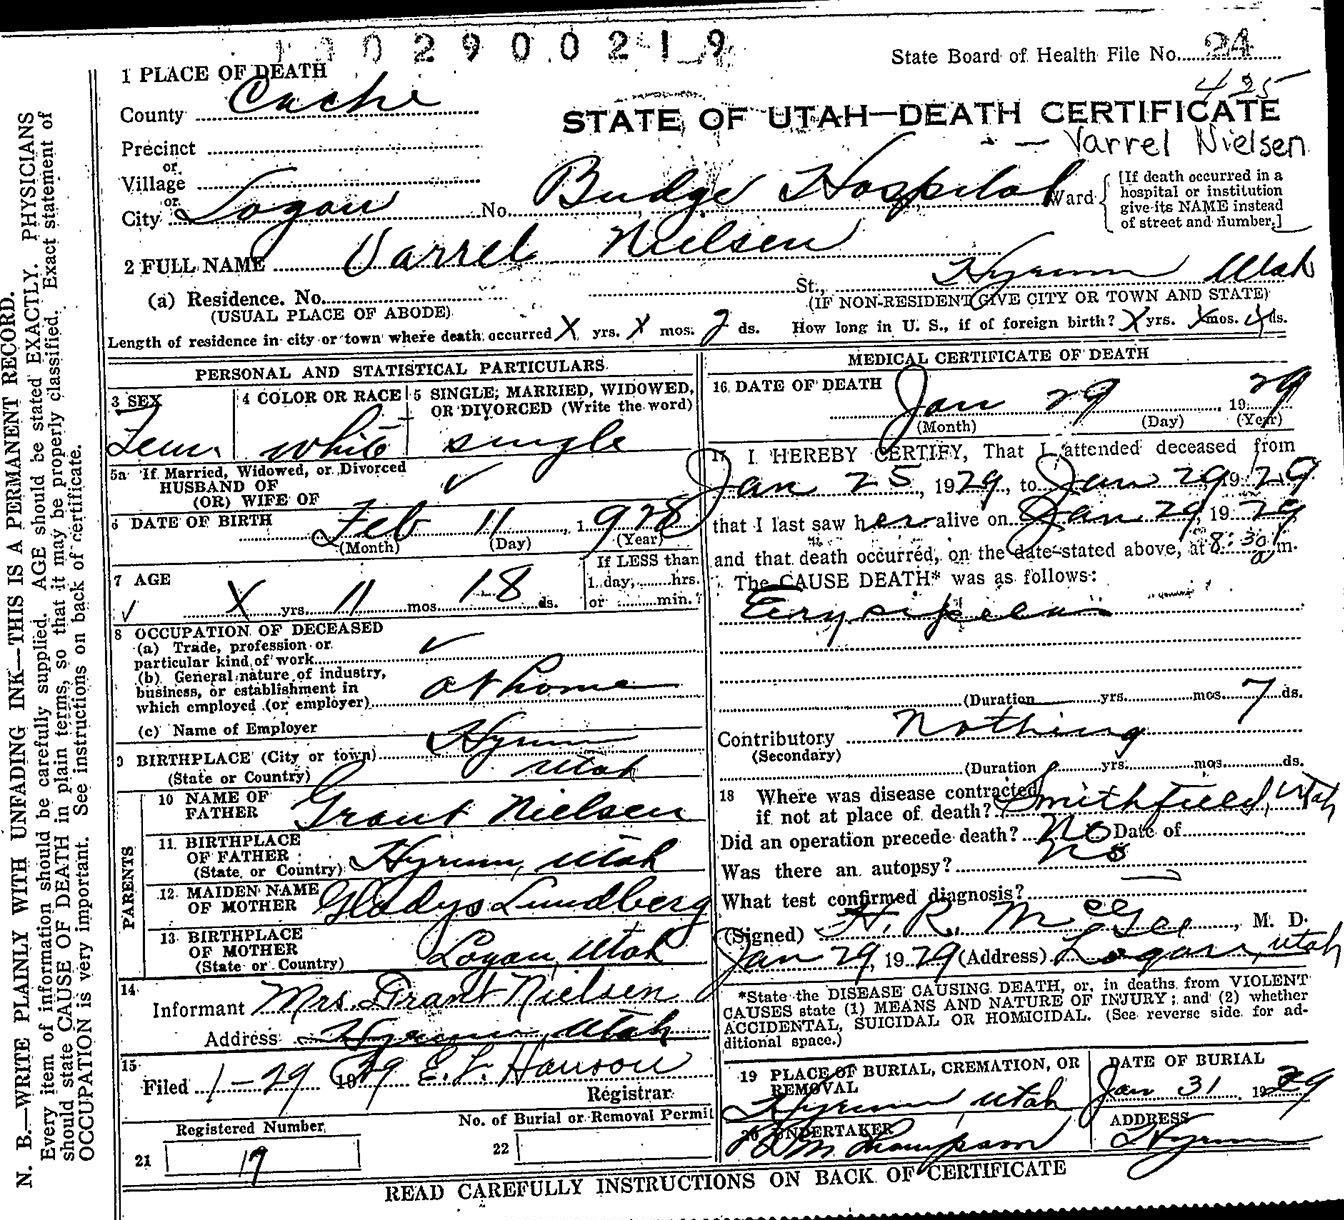 19029002-19
State Board of Health File No. 24
425
1 PLACE OF DEATH
County Cache
STATE OF UTAH—DEATH CERTIFICATE
— Varrel Nielsen
Precinct
or
Village
or
City Logan No. Budge Hospital Ward
[If death occurred in a hospital or institution give its NAME instead of street and number.]
2 FULL NAME Varrel Nielsen
(a) Residence. No. St., Hyrum Utah
(USUAL PLACE OF ABODE) (IF NON-RESIDENT GIVE CITY OR TOWN AND STATE)
Length of residence in city or town where death occurred X yrs. X mos. 7 ds. How long in U. S., if of foreign birth? X yrs. X mos. X ds.
PERSONAL AND STATISTICAL PARTICULARS
3 SEX 4 COLOR OR RACE 5 SINGLE, MARRIED, WIDOWED, OR DIVORCED (Write the word)
Fem. white single
5a If Married, Widowed, or Divorced
HUSBAND OF
(OR) WIFE OF
6 DATE OF BIRTH Feb 11 1928
(Month) (Day) (Year)
7 AGE If LESS than
1 day, hrs.
X yrs. 11 mos. 18 ds. or min.?
8 OCCUPATION OF DECEASED
(a) Trade, profession or
particular kind of work
(b) General nature of industry,
business, or establishment in
which employed (or employer) at home
(c) Name of Employer
9 BIRTHPLACE (City or town) Hyrum
(State or Country) Utah
PARENTS
10 NAME OF FATHER Grant Nielsen
11 BIRTHPLACE OF FATHER (State or Country) Hyrum, Utah
12 MAIDEN NAME OF MOTHER Gladys Lundberg
13 BIRTHPLACE OF MOTHER (State or Country) Logan, Utah
14
Informant Mrs. Grant Nielsen
Address Hyrum, Utah
15
Filed 1-29 1929 E. L. Hanson
Registrar
Registered Number No. of Burial or Removal Permit
21 19 22
MEDICAL CERTIFICATE OF DEATH
16 DATE OF DEATH Jan 29, 1929
(Month) (Day) (Year)
17 I HEREBY CERTIFY, That I attended deceased from
Jan 25, 1929, to Jan 29 1929
that I last saw her alive on Jan 29, 1929
and that death occurred, on the date stated above, at 8:30 a m.
The CAUSE DEATH* was as follows:
Erysipelas
(Duration yrs. mos. 7 ds.
Contributory Nothing
(Secondary)
(Duration yrs. mos. ds.
18 Where was disease contracted
if not at place of death? Smithfield, Utah
Did an operation precede death? No Date of
Was there an autopsy? No
What test confirmed diagnosis?
(Signed) H. R. McGee, M. D.
Jan 29, 1929 (Address) Logan, Utah
*State the DISEASE CAUSING DEATH, or, in deaths from VIOLENT
CAUSES state (1) MEANS AND NATURE OF INJURY; and (2) whether
ACCIDENTAL, SUICIDAL OR HOMICIDAL. (See reverse side for ad-
ditional space.)
19 PLACE OF BURIAL, CREMATION, OR REMOVAL DATE OF BURIAL
Hyrum, Utah Jan 31 1929
20 UNDERTAKER ADDRESS
Thompson Hyrum
READ CAREFULLY INSTRUCTIONS ON BACK OF CERTIFICATE
N. B.—WRITE PLAINLY WITH UNFADING INK—THIS IS A PERMANENT RECORD.
Every item of information should be carefully supplied. AGE should be stated EXACTLY. PHYSICIANS
should state CAUSE OF DEATH in plain terms, so that it may be properly classified. Exact statement of
OCCUPATION is very important. See instructions on back of certificate.